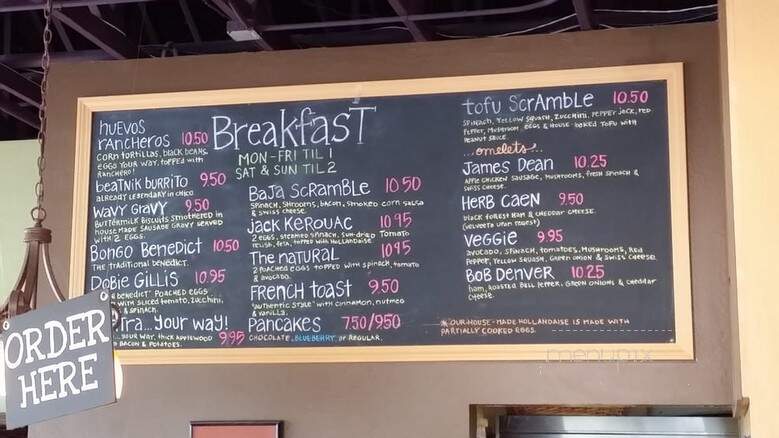 Breakfast
MON-FRI TIL 1
SAT & SUN TIL 2
huevos
rancheros 10.50
corn tortillas, black beans,
eggs your way, topped with
ranchero!
beatnik burrito 9.50
already legendary in chico
wavy gravy 9.50
buttermilk biscuits smothered in
house made sausage gravy served
with 2 eggs.
Bongo Benedict 10.50
the traditional benedict.
Dobie Gillis 10.95
benedict" poached eggs
with sliced tomato, zucchini,
& spinach.
ira...your way! 9.95
your way, thick applewood
bacon & potatoes.
Baja Scramble 10 50
spinach, shrooms, bacon, smoked corn salsa
& swiss cheese.
Jack Kerouac 10 95
2 eggs, steamed spinach, sun-dried tomato
relish, feta, topped with hollandaise
The natural 10 95
2 poached eggs topped with spinach, tomato
& avocado.
French toast 9.50
"authentic style" with cinnamon, nutmeg
& vanilla.
pancakes 7.50/9.50
chocolate, blueberry, or regular.
tofu Scramble 10.50
spinach, yellow squash, zucchini, pepper jack, red
pepper, mushroom, eggs & house-baked tofu with
peanut sauce.
...omelets...
James Dean 10.25
apple chicken sausage, mushrooms, fresh spinach &
swiss cheese.
Herb Caen 9.50
black forest ham & cheddar cheese.
Veggie 9.95
avocado, spinach, tomatoes, mushrooms, red
pepper, yellow squash, green onion & swiss cheese.
Bob Denver 10.25
ham, roasted bell pepper, green onions & cheddar
cheese.
* our house-made hollandaise is made with
partially cooked eggs.
ORDER
HERE
menupix